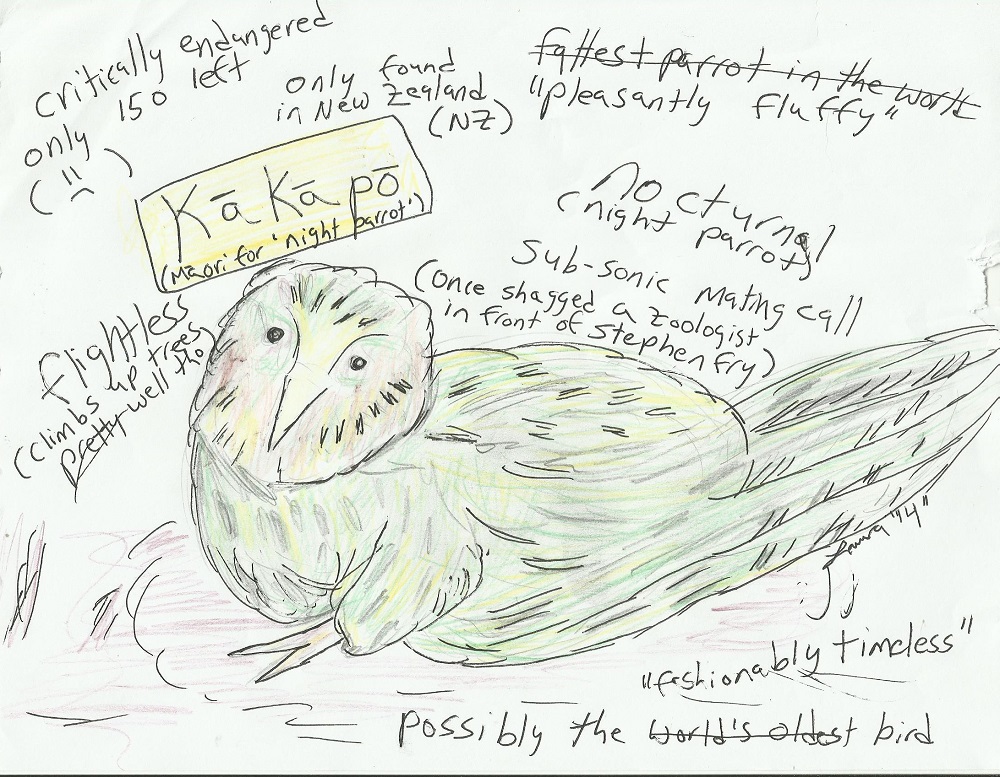 critically endangered
only 150 left
only found
in New Zealand
(NZ)
fattest parrot in the world
"pleasantly fluffy"
Kākāpō
(Māori for 'night parrot')
nocturnal
(night parrot)
Sub-sonic mating call
(once shagged a zoologist
in front of Stephen Fry)
flightless
(climbs up trees
pretty well tho)
"fashionably timeless"
possibly the world's oldest bird